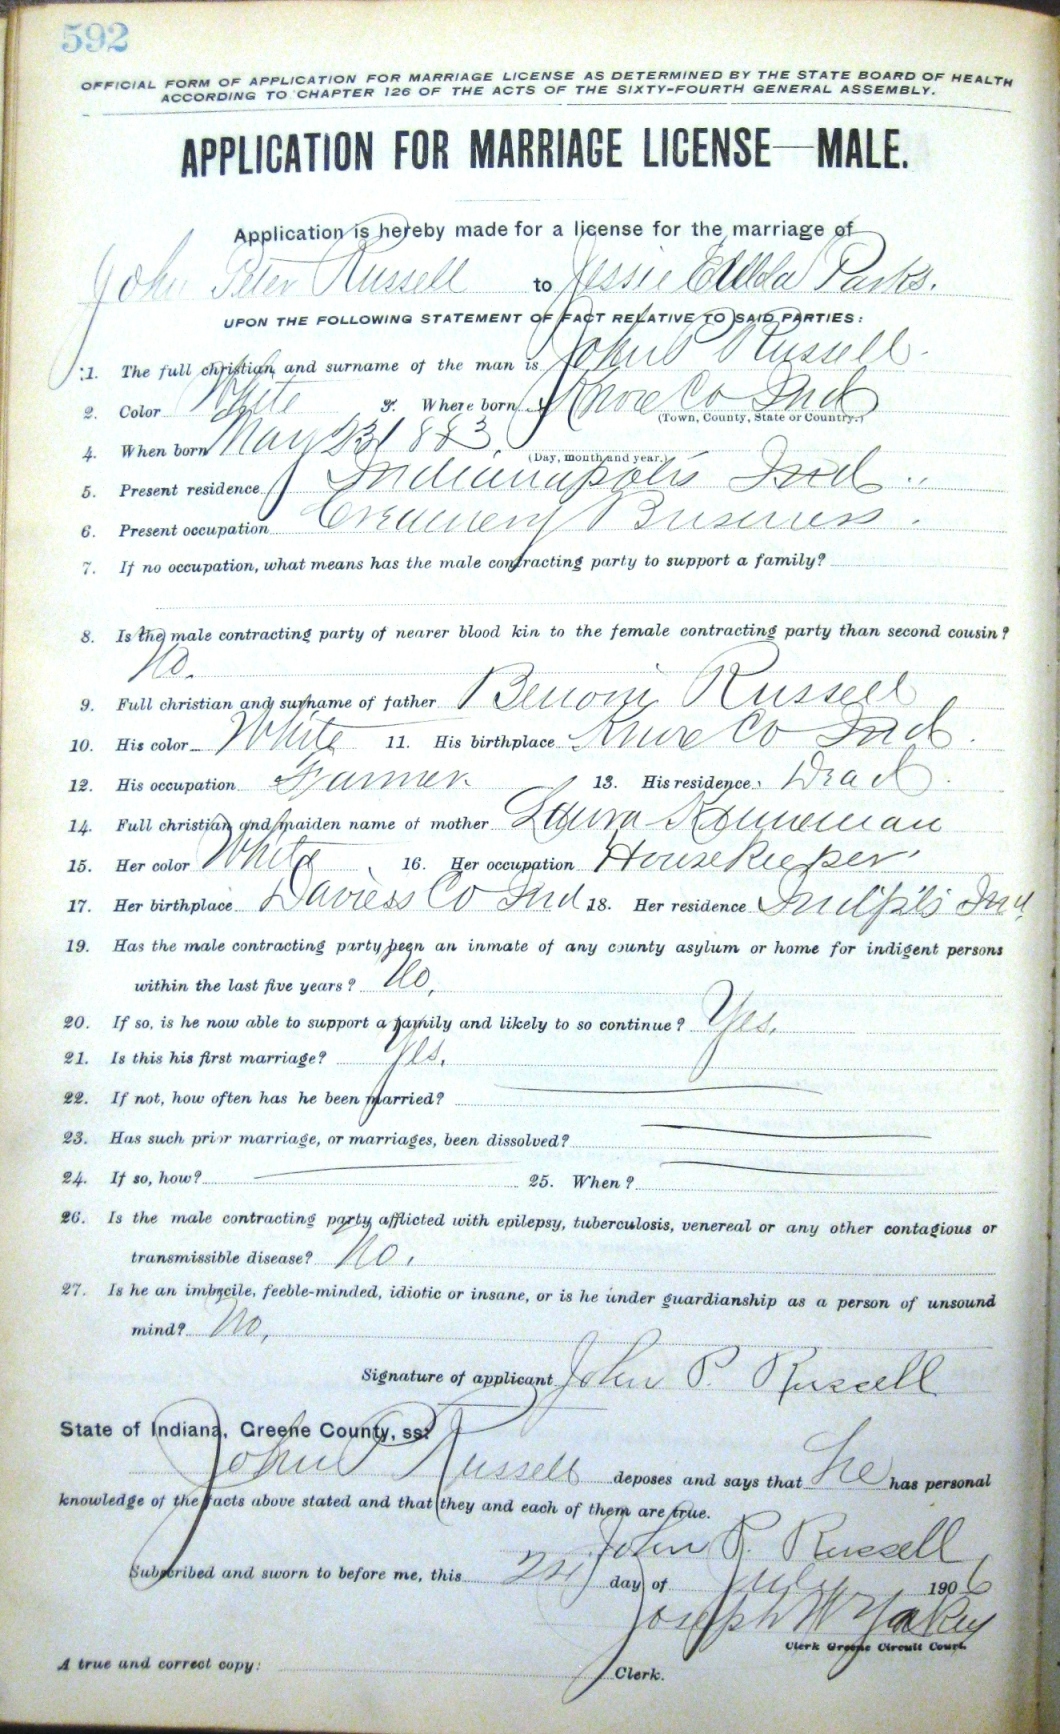 592
OFFICIAL FORM OF APPLICATION FOR MARRIAGE LICENSE AS DETERMINED BY THE STATE BOARD OF HEALTH
ACCORDING TO CHAPTER 126 OF THE ACTS OF THE SIXTY-FOURTH GENERAL ASSEMBLY.
APPLICATION FOR MARRIAGE LICENSE—MALE.
Application is hereby made for a license for the marriage of
John Peter Russell to Jessie Edda Parks.
UPON THE FOLLOWING STATEMENT OF FACT RELATIVE TO SAID PARTIES:
1. The full christian and surname of the man is John P Russell.
2. Color White 3. Where born Knox Co Ind
(Town, County, State or Country.)
4. When born May 23 1883
(Day, month and year.)
5. Present residence Indianapolis Ind
6. Present occupation Creamery Business.
7. If no occupation, what means has the male contracting party to support a family?
8. Is the male contracting party of nearer blood kin to the female contracting party than second cousin?
No.
9. Full christian and surname of father Benoni Russell
10. His color White 11. His birthplace Knox Co Ind.
12. His occupation Farmer 13. His residence Dead.
14. Full christian and maiden name of mother Laura
15. Her color White 16. Her occupation Housekeeper
17. Her birthplace Daviess Co Ind 18. Her residence Indpls Ind
19. Has the male contracting party been an inmate of any county asylum or home for indigent persons
within the last five years? No.
20. If so, is he now able to support a family and likely to so continue? Yes.
21. Is this his first marriage? Yes.
22. If not, how often has he been married?
23. Has such prior marriage, or marriages, been dissolved?
24. If so, how? 25. When?
26. Is the male contracting party afflicted with epilepsy, tuberculosis, venereal or any other contagious or
transmissible disease? No.
27. Is he an imbecile, feeble-minded, idiotic or insane, or is he under guardianship as a person of unsound
mind? No.
Signature of applicant John P. Russell
State of Indiana, Greene County, ss:
John P Russell deposes and says that he has personal
knowledge of the facts above stated and that they and each of them are true.
John P. Russell
Subscribed and sworn to before me, this 24 day of July 1906
Joseph W Yakey
Clerk Greene Circuit Court.
A true and correct copy: Clerk.